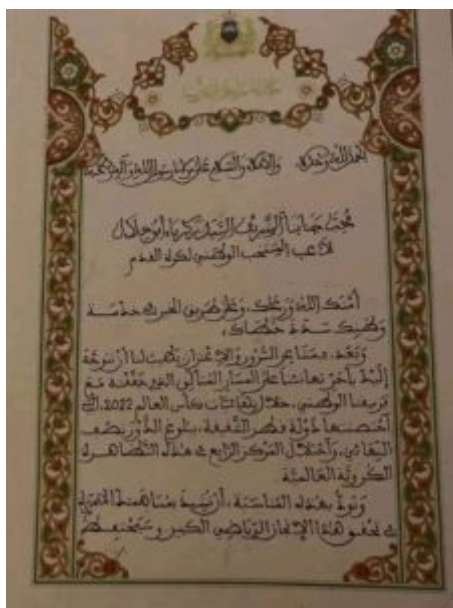 الحمد لله وحده والصلاة والسلام على مولانا رسول الله وآله وصحبه
محب جنابنا الشريف السيد زكرياء أبو خلال
لاعب المنتخب الوطني لكرة القدم
أمنك الله ورعاك، وعلى طريق الخير
وبعد، فمن
إليك بأحر تهانئنا على المسار المتألق الذي حققته مع
فريقنا الوطني، خلال نهائيات كأس العالم 2022، التي
احتضنتها دولة قطر الشقيقة، ببلوغ الدور نصف
النهائي، واحتلال المركز الرابع في هذه التظاهرة
الكروية العالمية.
ونود بهذه المناسبة، أن نشيد بمساهمتك
في تحقيق هذا الإنجاز الرياضي الكبير